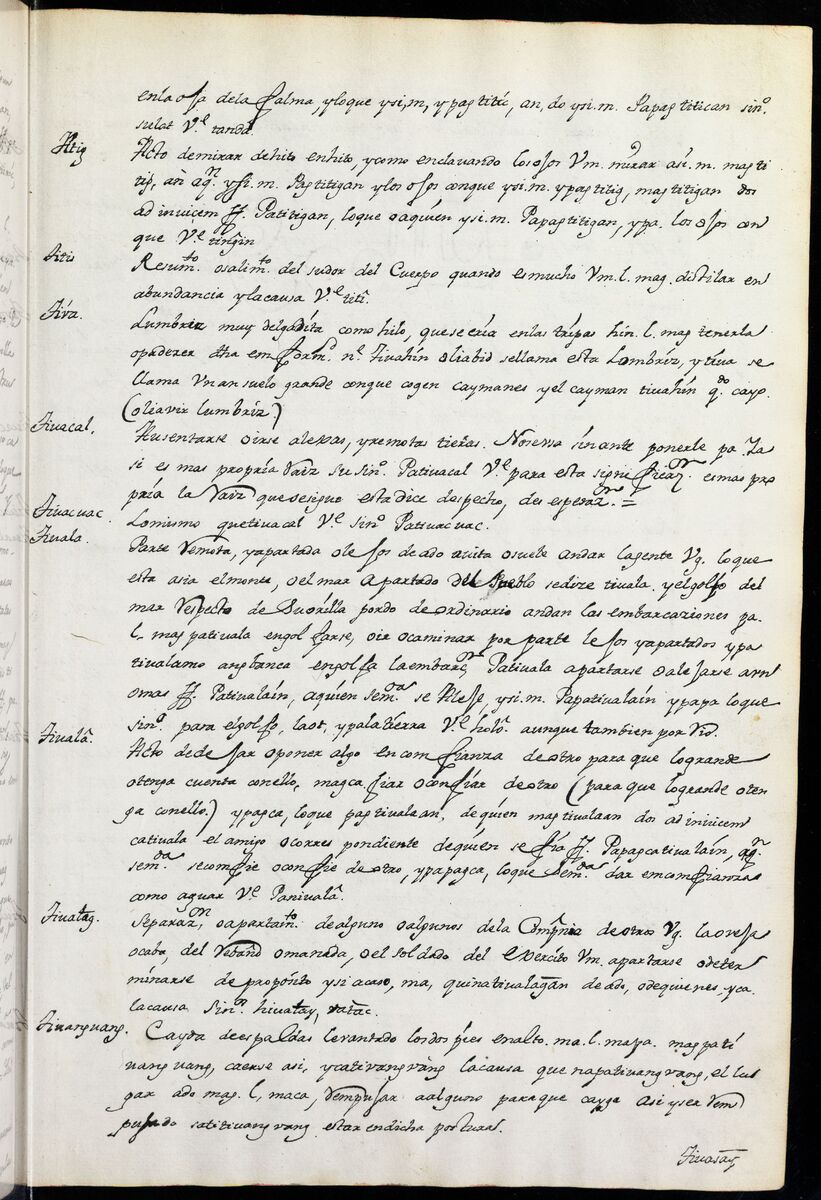 en la oja de la palma, y lo que ysi, m, ypagtitic, an, do ysi. m. Papagtitican sin.º
sulat V.e tanda.
Titig
Acto de mirar de hito en hito, y como enclavando los ojos Vm. mirar asi. m. magti
tig, an aq.n ysi. m. Pagtitigan y los ojos con que ysi. m ypagtitig, magtitigan dos
ad invicem ff. Patitigan, lo que o a quien ysi. m. Papagtitigan, ypa. los ojos con
que V.e tingin
Titis
Resum.to o salim.to del sudor del Cuerpo quando es mucho Vm. l. mag. distilar en
abundancia y la causa V.e titi.
Tiva.
Lumbriz muy delgadita como hilo, que se cria en las tripas hin. l. mag tenerla
o padezer dha enform.d n.e Tivahin oliabid se llama esta Lombriz, y tiva se
llama Un ansuelo grande con que cogen caymanes y el cayman tivahin q.do cayo.
(oleavir lumbriz)
Tivacal.
Ausentarse o irse alexas, y remotas tieras. No se usa sin ante ponerle pa. Ta
si es mas propria raiz su sin.º Pativacal V.e para esta significaz.on es mas pro
pria la raiz que se sigue esta dice despecho, desesperaz.on =
Tivacvac
Lo mismo que tivacal V.e sin.º Pativacvac.
Tivala
Parte remota, y apartada o lejos de ado avita o suele andar la gente Vg. lo que
esta asia el monte, o el mar apartado del Pueblo se dize tivala. y el golfo del
mar respecto de su orilla por do de ordinario andan las embarcaziones pa.
l. mag pativala engolfarse, o ir o caminar por parte lejos y apartados y pa
tivalamo ang banca engolfa la embarc.on Pativala apartarse o alejarse un
o mas ff. Pativalain, a quien sem.da se Aleje, ysi. m. Papativalain y papa lo que
sin.º para el golfo, laot, y pa la tierra V.e holo. aunque tambien por Vid.
Tivala.
Acto de dejar o poner algo en comfianza de otro para que lo grande
o tenga cuenta con ello, magca fiar o confiar de otro (para que lo grande o ten
ga con ello.) y pagca, lo que pagtivalaan, de quien magtivalaan dos ad invicem
cativala el amigo o corres pondiente de quien se fia ff. Papagcativalain, aq.n
sem.da se comfie o confie de otro, y papagca, lo que sem.da dar em comfianza
como aguar V.e Panivala.
Tivalag.
Separaz.on, o apartam.to de alguno o algunos de la Compñia de otros Vg. la oveja
o caba, del rebaño o manada, o el soldado del Exercito Vm. apartarse o deter
minarse de proposito y si acaso, ma, quinativalagan de ado, o de quienes, y ca.
la causa sin.on hivalay, vatac.
Tivangvang.
Cayda de espaldas levantado los dos pies en alto. ma. l. mapa. mag pati
vangvang, caerse asi, y cativangvang la causa que napativangvang, el lu
gar ado mag. l, maca, rempujar a alguno para que cayga asi y ser rem
pujado satitivangvang estar en dicha postura.
Tivasay